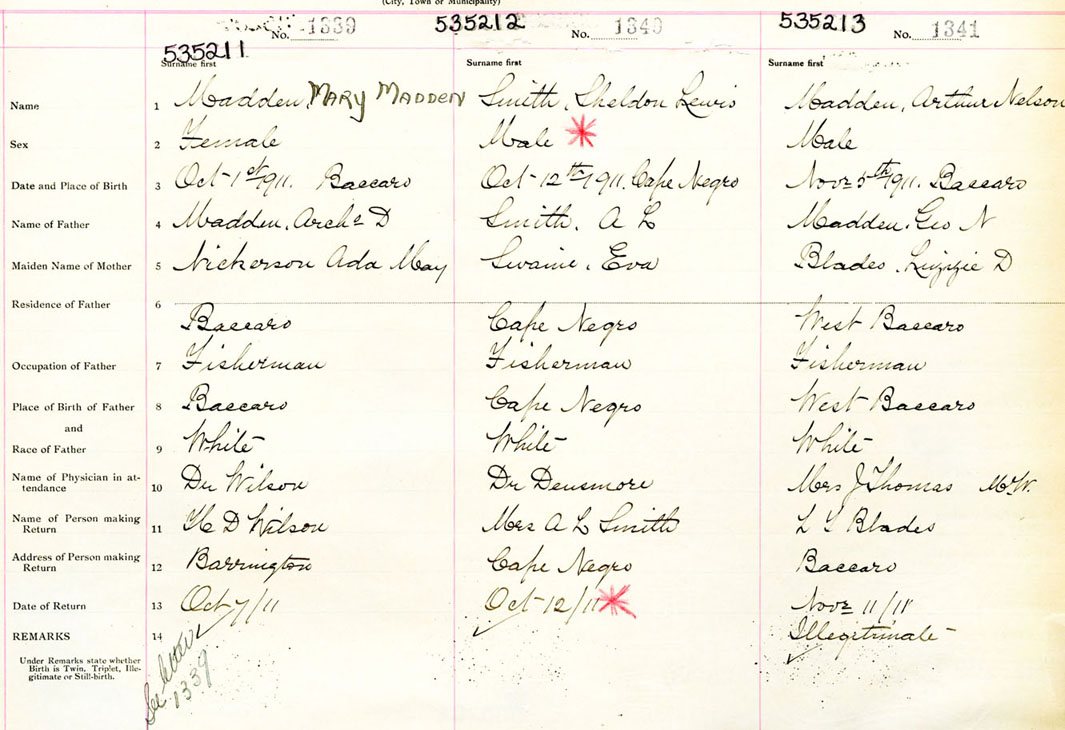 (City, Town or Municipality)
535211 No. 1339 535212 No. 1340 535213 No. 1341
Surname first Surname first Surname first
Name 1 Madden, MARY MADDEN Smith, Sheldon Lewis Madden, Arthur Nelson
Sex 2 Female Male Male
Date and Place of Birth 3 Oct 1st 1911. Baccaro Oct 12th 1911. Cape Negro Nov 5th 1911. Baccaro
Name of Father 4 Madden, Arch D Smith, A L Madden, Geo N
Maiden Name of Mother 5 Nickerson Ada May Swaine, Eva Blades, Lizzie D
Residence of Father 6 Baccaro Cape Negro West Baccaro
Occupation of Father 7 Fisherman Fisherman Fisherman
Place of Birth of Father 8 Baccaro Cape Negro West Baccaro
and
Race of Father 9 White White White
Name of Physician in at-
tendance 10 Dr Wilson Dr Densmore Mrs J Thomas M.W.
Name of Person making
Return 11 H D Wilson Mrs A L Smith L Blades
Address of Person making
Return 12 Barrington Cape Negro Baccaro
Date of Return 13 Oct 7/11 Oct 12/11 Nov 11/11
REMARKS 14 Illegitimate
Under Remarks state whether
Birth is Twin, Triplet, Ille-
gitimate or Still-birth.
See letter
1339